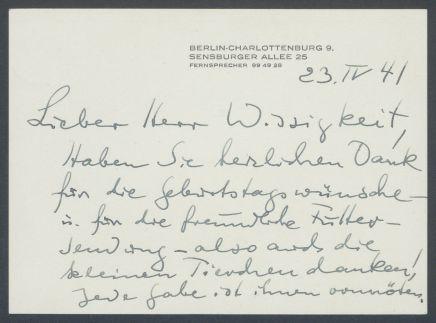 BERLIN-CHARLOTTENBURG 9.
SENSBURGER ALLEE 25
FERNSPRECHER 99 49 28
23. IV 41
Lieber Herr Wissigkeit,
Haben Sie herzlichen Dank
für die Geburtstagswünsche –
u. für die freundliche Futter-
sendung – also auch die
kleinen Tierchen danken!
jede Gabe ist ihnen vonnöten.